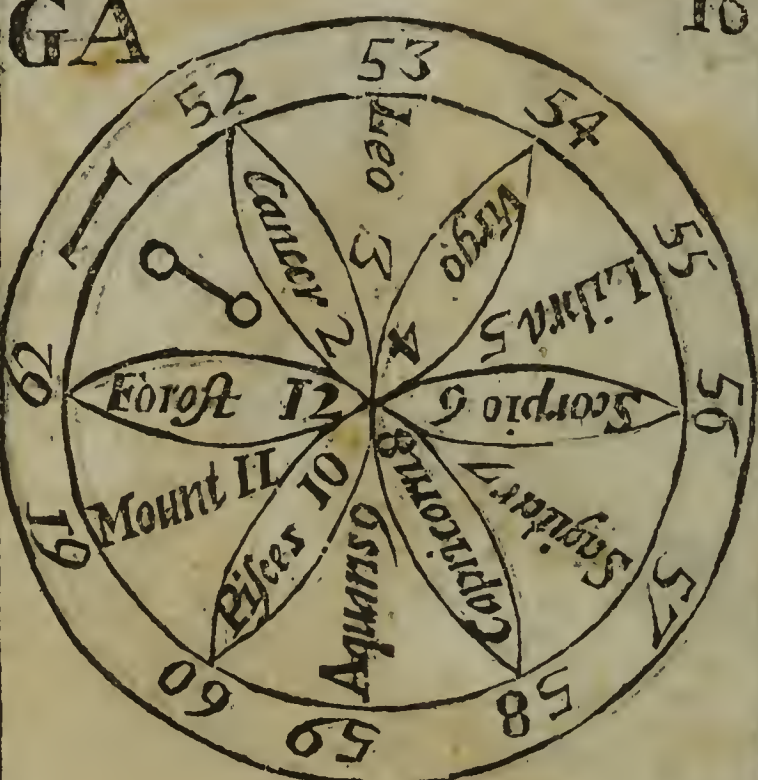 GA
16
52
53
54
55
56
57
58
59
60
61
62
I
Cancer 2
Leo 3
Virgo 4
Libra 5
Scorpio 6
Sagitar 7
Capricorn 8
Aquaris 9
Pisces 10
Mount 11
Forost 12